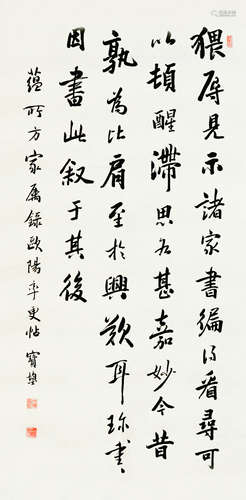 猥辱見示諸家書編得看尋可
以頓醒滯思為甚嘉妙今昔
孰為比肩至於興歎耳珎書〻
因書此叙于其後
蘊所方家属録歐陽率更帖 寶堃